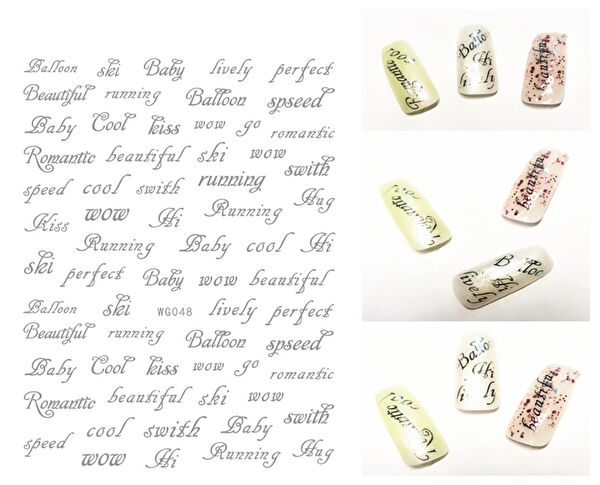 Balloon ski Baby lively perfect
Beautiful running Balloon spseed
Baby Cool kiss wow go romantic
Romantic beautiful ski wow swith
speed cool swith running Hug
Kiss wow Hi Running
Running Baby cool Hi
ski perfect Baby wow beautiful
Balloon ski WG048 lively perfect
Beautiful running Balloon spseed
Baby Cool kiss wow go romantic
Romantic beautiful ski wow
speed cool swith Baby swith
wow Hi Running Hug
cool
Romantic
Balloo
Hi
lively
beautiful
cool
Romantic
beautiful
Balloo
Hi
lively
cool
Romantic
Balloon
Hi
lively
beautiful